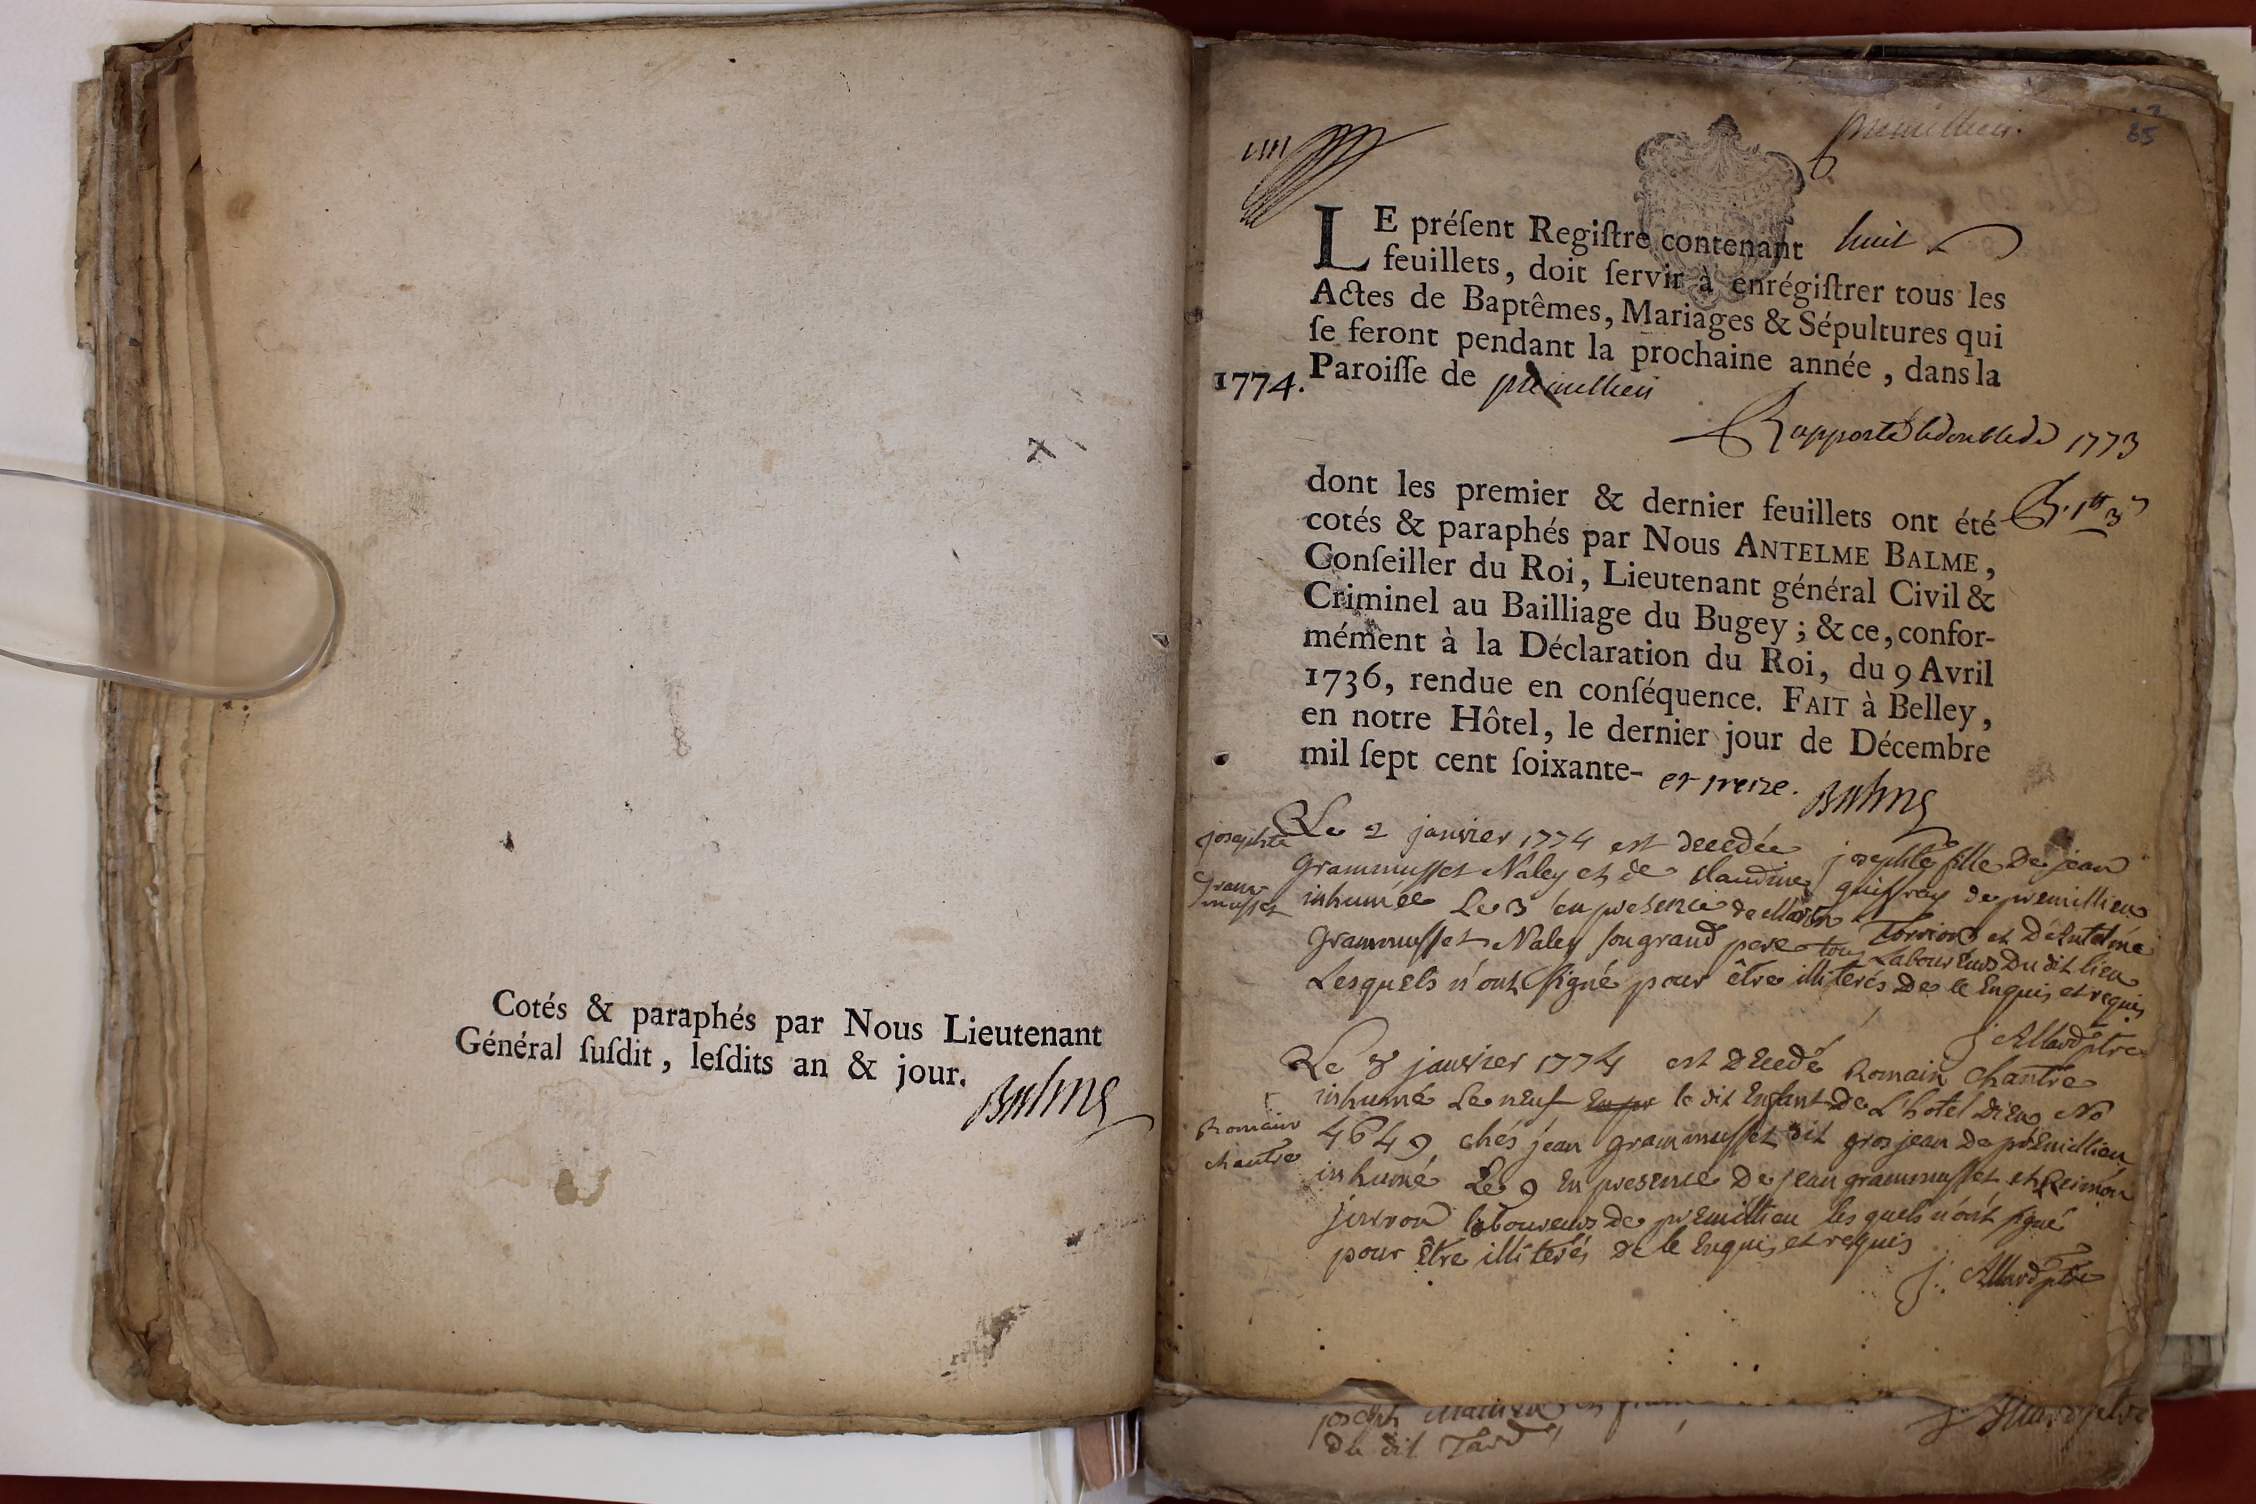 Cotés & paraphés par Nous Lieutenant
Général ſuſdit, leſdits an & jour.
Balme
premillieu.
85
LE préſent Regiſtre contenant huit
feuillets, doit ſervir à enrégiſtrer tous les
Actes de Baptêmes, Mariages & Sépultures qui
ſe feront pendant la prochaine année, dans la
1774. Paroiſſe de premillieu
Rapporté le double de 1773
dont les premier & dernier feuillets ont été
cotés & paraphés par Nous ANTELME BALME,
Conſeiller du Roi, Lieutenant général Civil &
Criminel au Bailliage du Bugey; & ce, confor-
mément à la Déclaration du Roi, du 9 Avril
1736, rendue en conſéquence. FAIT à Belley,
en notre Hôtel, le dernier jour de Décembre
mil ſept cent ſoixante- et treize. Balme
josephte
Gram
musset
Le 2 janvier 1774 est decedée josephte fille de jean
Grammusset Naley et de Claudine guiffray de premillieu
inhumée Le 3 en presence de Martin Torrion et d'Antelme
Grammusset Naley son grand pere tous Laboureurs du dit lieu
Lesquels n'ont signé pour être illiterés de ce Enquis et requis
j: Allard ptre
Romain
chantre
Le 8 janvier 1774 est decedé Romain chantre
inhumé Le neuf le dit Enfant de L'hotel dieu No
4649 chés jean grammusset dit gros jean de premillieu
inhumé Le 9 en presence de jean grammusset et Reimon
juvron laboureurs de premillieu les quels n'ont signé
pour être illiterés de ce Enquis et requis
j: Allard ptre
joseph
du dit